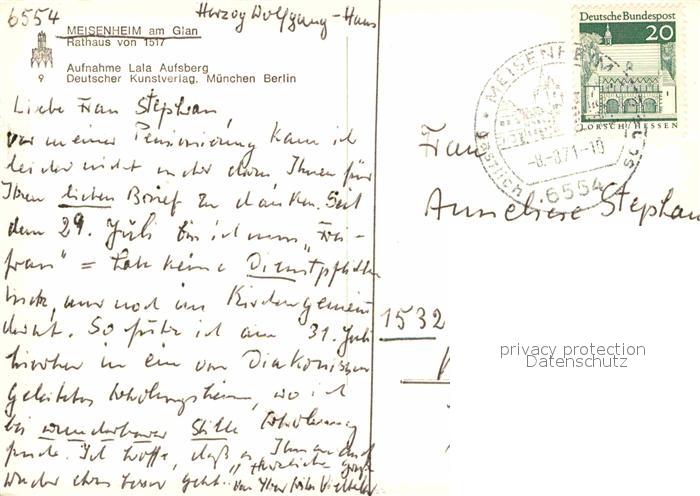 6554 Herzog Wolfgang-Haus
MEISENHEIM am Glan
Rathaus von 1517
Aufnahme Lala Aufsberg
9 Deutscher Kunstverlag, München Berlin
Liebe Frau Stephan,
vor meiner Pensionierung kam ich
leider nicht mehr dazu Ihnen für
Ihren lieben Brief zu danken. Seit
dem 29. Juli bin ich nun „
" = habe keine Dienstpflichten
mehr, nur noch im Kirchengemein
. So fuhr ich am 31. Juli
hierher in ein von Diakonissen
geleitetes Erholungsheim, wo ich
bei wunderbarer Stille Erholung
finde. Ich hoffe, daß es Ihnen auch
wieder etwas besser geht. Herzliche Grüße
von Ihrer
Deutsche Bundespost
20
LORSCH/HESSEN
MEISENHEIM
-8.-8.71-10
6554
Frau
Anneliese Stephan
1532
privacy protection
Datenschutz